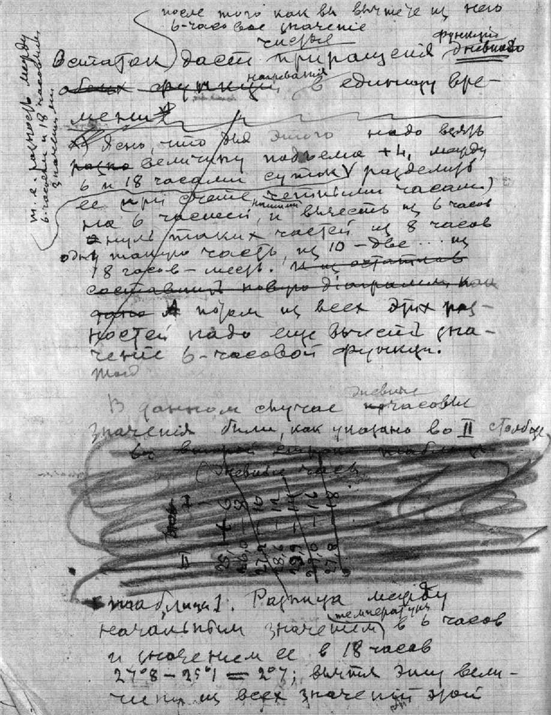 после того как вы вычтете из него
6-часовое значение
чистые функции
Остаток дает приращения дневного
функции нагревания в единицу вре-
мени
Ясно, что для этого надо взять
величину подъема +4, между
6 и 18 часами суток разделить
ее при счете четными часами
на 6 частей, и вычесть из 6 часов
нуль таких частей из 8 часов
одну такую часть, из 10 - две ... из
18 часов - шесть. и из остатков
составить новую диаграмму как
потом из всех этих раз-
ностей надо еще вычесть зна-
чение 6-часовой функции.
т. е. разность между
6-часовым и 18 часовым
значениями
дневные
В данном случае часовые
значения были, как указано во II столбце
(дневные часы
таблица 1. Разница между
температуры
начальным значением в 6 часов
и значением ее в 18 часов
27°8 - 25°1 = 2°7; вычтя эту вели-
чину из всех значений этой